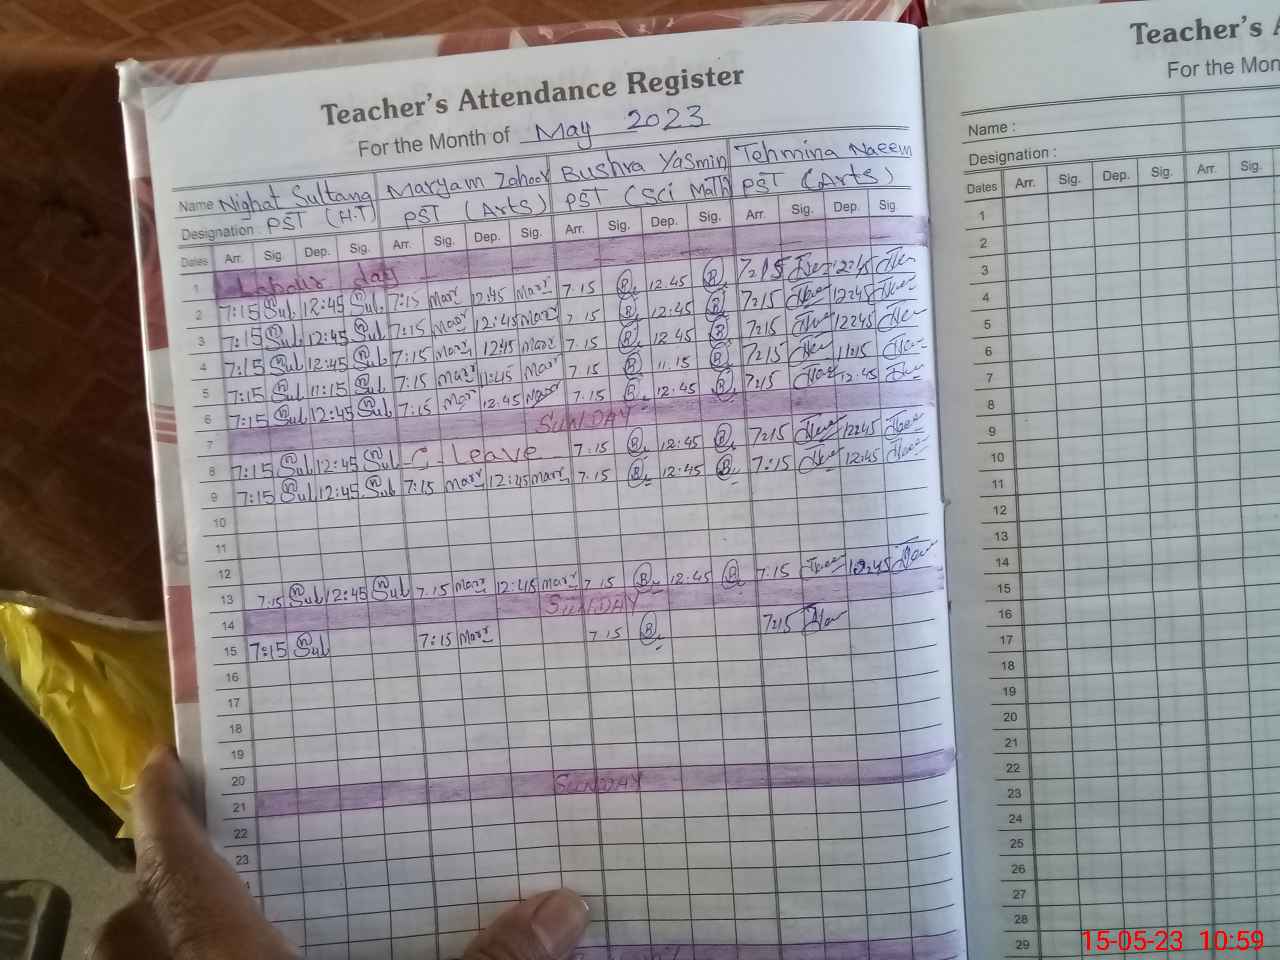 Teacher's Attendance Register
For the Month of May 2023
Name Nighat Sultana Maryam Zahoor Bushra Yasmin Tehmina Naeem
Designation : PST (H.T) PST (Arts) PST (Sci Math) PST (Arts)
Dates Arr. Sig. Dep. Sig. Arr. Sig. Dep. Sig. Arr. Sig. Dep. Sig. Arr. Sig. Dep. Sig.
1 Labour day
2 7:15 Sul 12:45 Sul 7:15 Marr 12:45 Marr 7.15 B 12.45 B 7:15 12:45
3 7:15 Sul 12:45 Sul 7:15 Marr 12:45 Marr 7.15 B 12:45 B 7:15 12:45
4 7:15 Sul 12:45 Sul 7:15 Marr 12:45 Marr 7.15 B 12.45 B 7:15 12:45
5 7:15 Sul 11:15 Sul 7:15 Marr 11:45 Marr 7.15 B 11.15 B 7:15 11:15
6 7:15 Sul 12:45 Sul 7:15 Mar 12:45 Marr 7.15 B 12.45 B 7:15 12:45
7 SUNDAY
8 7:15 Sul 12:45 Sul C. Leave 7:15 B 12:45 B 7:15 12:45
9 7:15 Sul 12:45 Sul 7:15 Marr 12:45 Marr 7:15 B 12:45 B 7:15 12:45
10
11
12
13 7:15 Sul 12:45 Sul 7.15 Marr 12:45 Marr 7.15 B 12:45 B 7:15 12:45
14 SUNDAY
15 7:15 Sul 7:15 Marr 7.15 B 7:15
16
17
18
19
20
21 SUNDAY
22
23
Teacher's A
For the Mon
Name :
Designation :
Dates Arr. Sig. Dep. Sig. Arr. Sig.
1
2
3
4
5
6
7
8
9
10
11
12
13
14
15
16
17
18
19
20
21
22
23
24
25
26
27
28
29
15-05-23 10:59